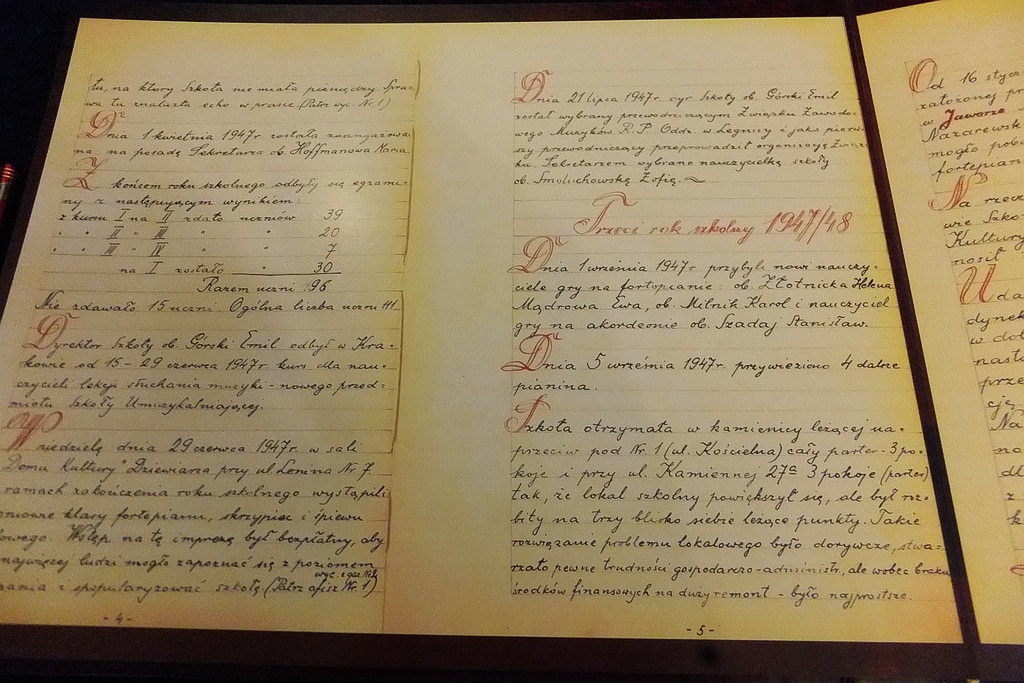 tu, na który Szkoła nie miała pieniędzy. Spra-
wa ta znalazła echo w prasie. (Patrz wyc. Nr. 1)
Dnia 1 kwietnia 1947 r. została zaangażowa-
na na posadę Sekretarza ob. Hoffmanowa Maria.
Z końcem roku szkolnego odbyły się egzami-
ny z następującym wynikiem:
z kursu I na II zdało uczniów 39
" " II " III " 20
" " III " IV " 7
na I zostało " 30
Razem uczni 96
Nie zdawało 15 uczni. Ogólna liczba uczni 111.
Dyrektor Szkoły ob. Górski Emil odbył w Kra-
kowie od 15 - 29 czerwca 1947 r. kurs dla nau-
czycieli lekcji słuchania muzyki - nowego przed-
miotu Szkoły Umuzykalniającej.
W niedzielę dnia 29 czerwca 1947 r. w sali
Domu Kultury" Dziewiarza przy ul. Lenina Nr 7.
ramach zakończenia roku szkolnego wystąpili
klasy fortepianu, skrzypiec i śpiewu
Wstęp na tę imprezę był bezpłatny, aby
najwięcej ludzi mogło zapoznać się z poziomem
i spopularyzować szkołę (Patrz afisz Nr. 1)
- 4 -
Dnia 21 lipca 1947 r. dyr. Szkoły ob. Górski Emil
został wybrany przewodniczącym Związku Zawodo-
wego Muzyków R.P. Oddz. w Legnicy i jako pierw-
szy przewodniczący przeprowadził organizację Związ-
ku. Sekretarzem wybrano nauczycielkę szkoły
ob. Smoluchowską Zofię.
Trzeci rok szkolny 1947/48
Dnia 1 września 1947 r. przybyli nowi nauczy-
ciele gry na fortepianie: ob. Złotnicka Helena
Mądrowa Ewa, ob. Milnik Karol i nauczyciel
gry na akordeonie ob. Szadaj Stanisław.
Dnia 5 września 1947 r. przywieziono 4 dalsze
pianina.
Szkoła otrzymała w kamienicy leżącej na-
przeciw pod Nr. 1 (ul. Kościelna) cały parter - 3 po-
koje i przy ul. Kamiennej 27a 3 pokoje (parter)
tak, że lokal szkolny powiększył się, ale był roz-
bity na trzy blisko siebie leżące punkty. Takie
rozwiązanie problemu lokalowego było dorywcze, stwa-
rzało pewne trudności gospodarczo-administr., ale wobec braku
środków finansowych na duży remont - było najprostsze.
- 5 -
Od 16 stycz
założonej pr
w Jaworze
Nazarewsk
mogło pob
fortepian
Na rzecz
wie Szko
Kultury
nosił
Uda
dynek
w do
nastą
prze
cję
Na
no